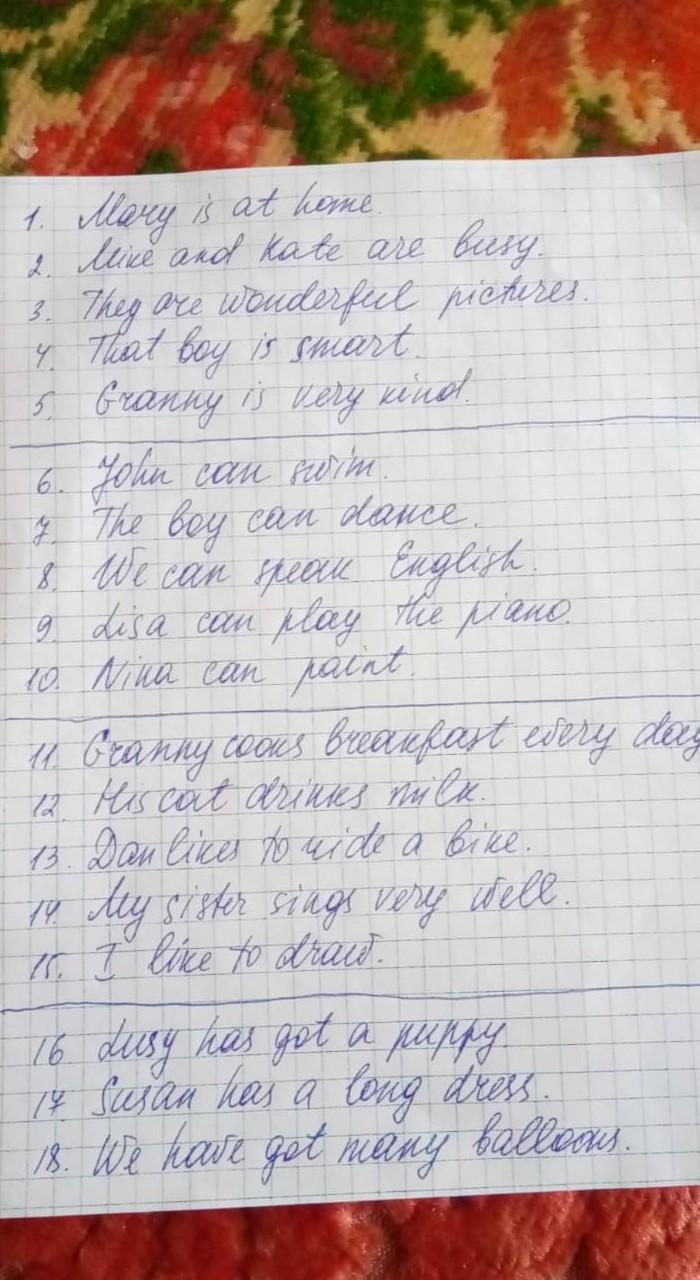 1. Mary is at home.
2. Mike and Kate are busy.
3. They are wonderful pictures.
4. That boy is smart.
5. Granny is very kind.
6. John can swim.
7. The boy can dance.
8. We can speak English.
9. Lisa can play the piano.
10. Nina can paint.
11. Granny cooks breakfast every day
12. His cat drinks milk.
13. Dan likes to ride a bike.
14. My sister sings very well.
15. I like to draw.
16. Lusy has got a puppy.
17. Susan has a long dress.
18. We have got many balloons.